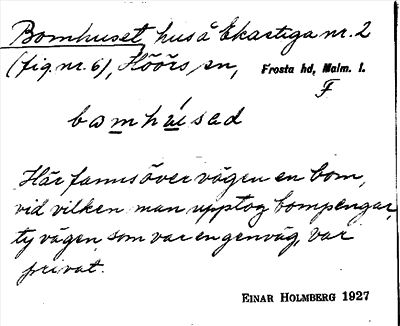 Bomhuset, hus å Ekastiga nr. 2
(fig. nr. 6), Höörs sn, Frosta hd, Malm. l.
F
bomhúsad
Här fanns över vägen en bom,
vid vilken man upptog bompengar,
ty vägen, som var en genväg, var
privat.
EINAR HOLMBERG 1927